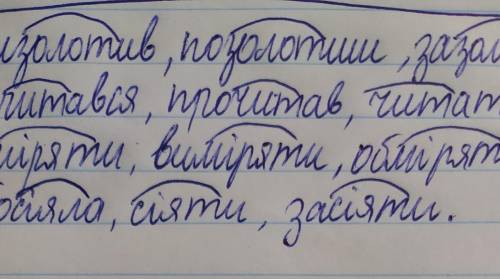 изолотив, позолотиши, зазол
читався, прочитав, читат
міряти, виміряти, обмірят
осіяла, сіяти, засіяти.